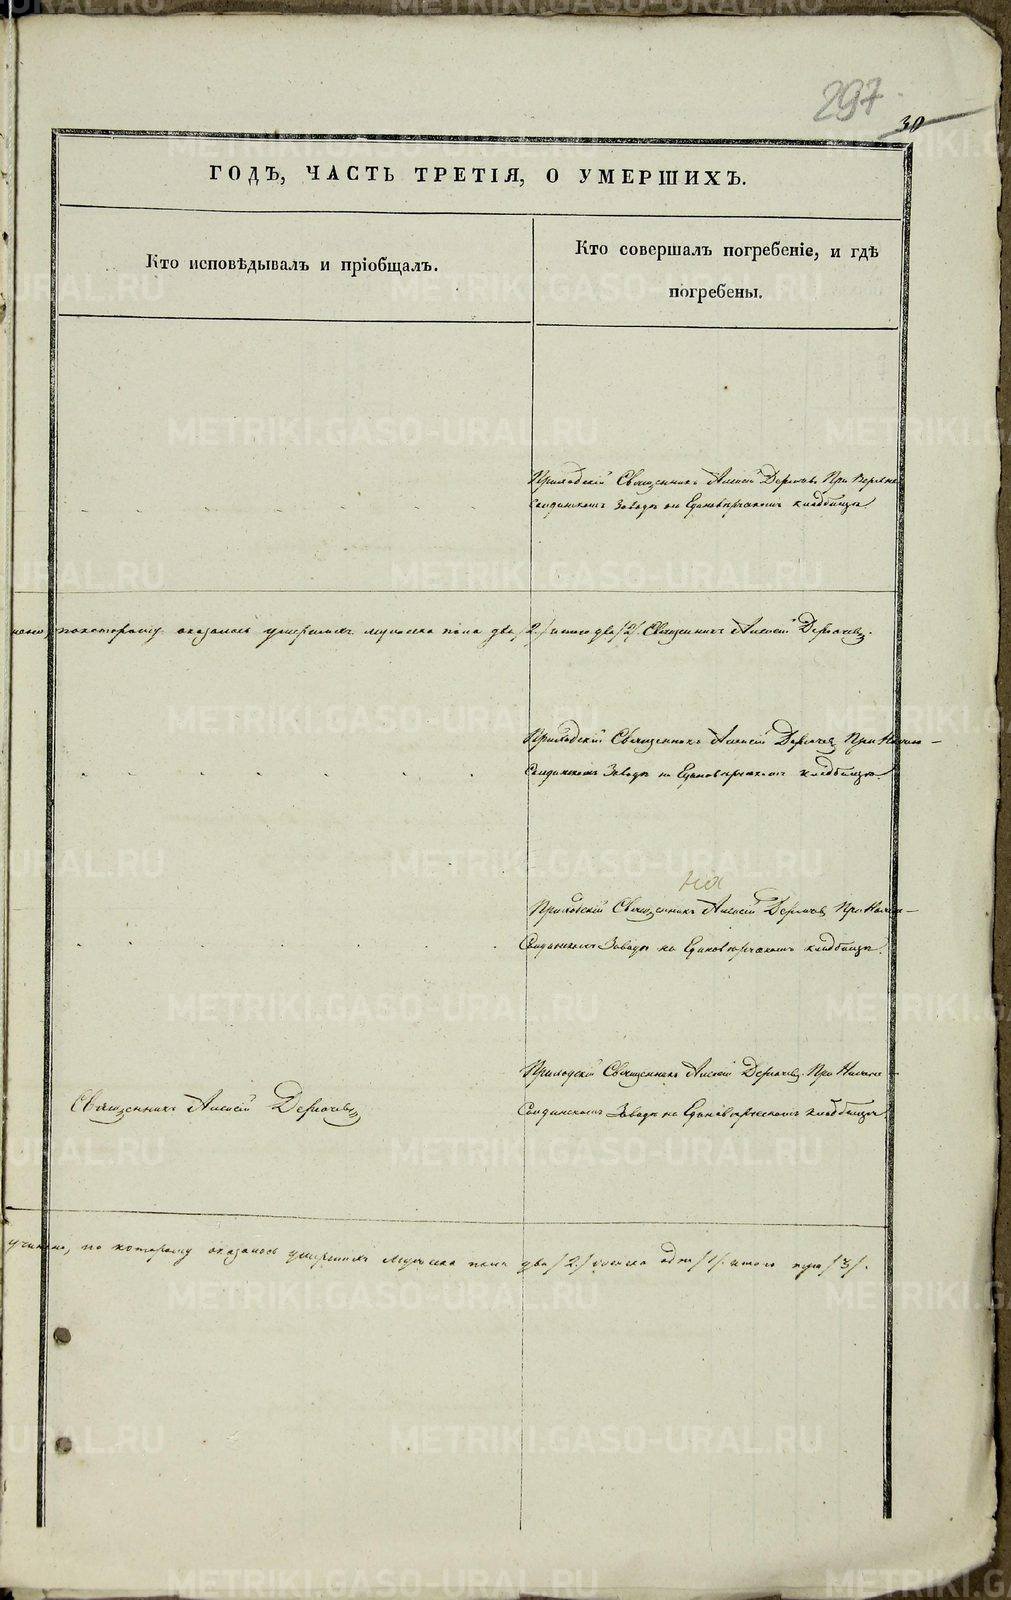 297
30
ГОДЪ, ЧАСТЬ ТРЕТІЯ, О УМЕРШИХЪ.
Кто исповѣдывалъ и пріобщалъ.
Кто совершалъ погребеніе, и гдѣ
погребены.
Приходскій Священникъ Алексій Дерючевъ При Верхне
Салдинскомъ Заводѣ на Единовѣрческомъ кладбищѣ
по которому оказалось умершихъ мужеска пола два /2/ итого два /2/. Священникъ Алексій Дерючевъ.
Приходскій Священникъ Алексій Дерючевъ При Нижне-
Салдинскомъ Заводѣ на Единовѣрческомъ кладбищѣ.
на
Приходскій Священникъ Алексій Дерючевъ При Нижне-
Салдинскомъ Заводѣ на Единовѣрческомъ кладбищѣ.
Приходскій Священникъ Алексій Дерючевъ При Нижне-
Священникъ Алексій Дерючевъ
Салдинскомъ Заводѣ на Единовѣрческомъ кладбищѣ.
учинено, по которому оказалось умершихъ мужеска пола два /2/ женска одна /1/ итого три /3/.
METRIKI.GASO-URAL.RU